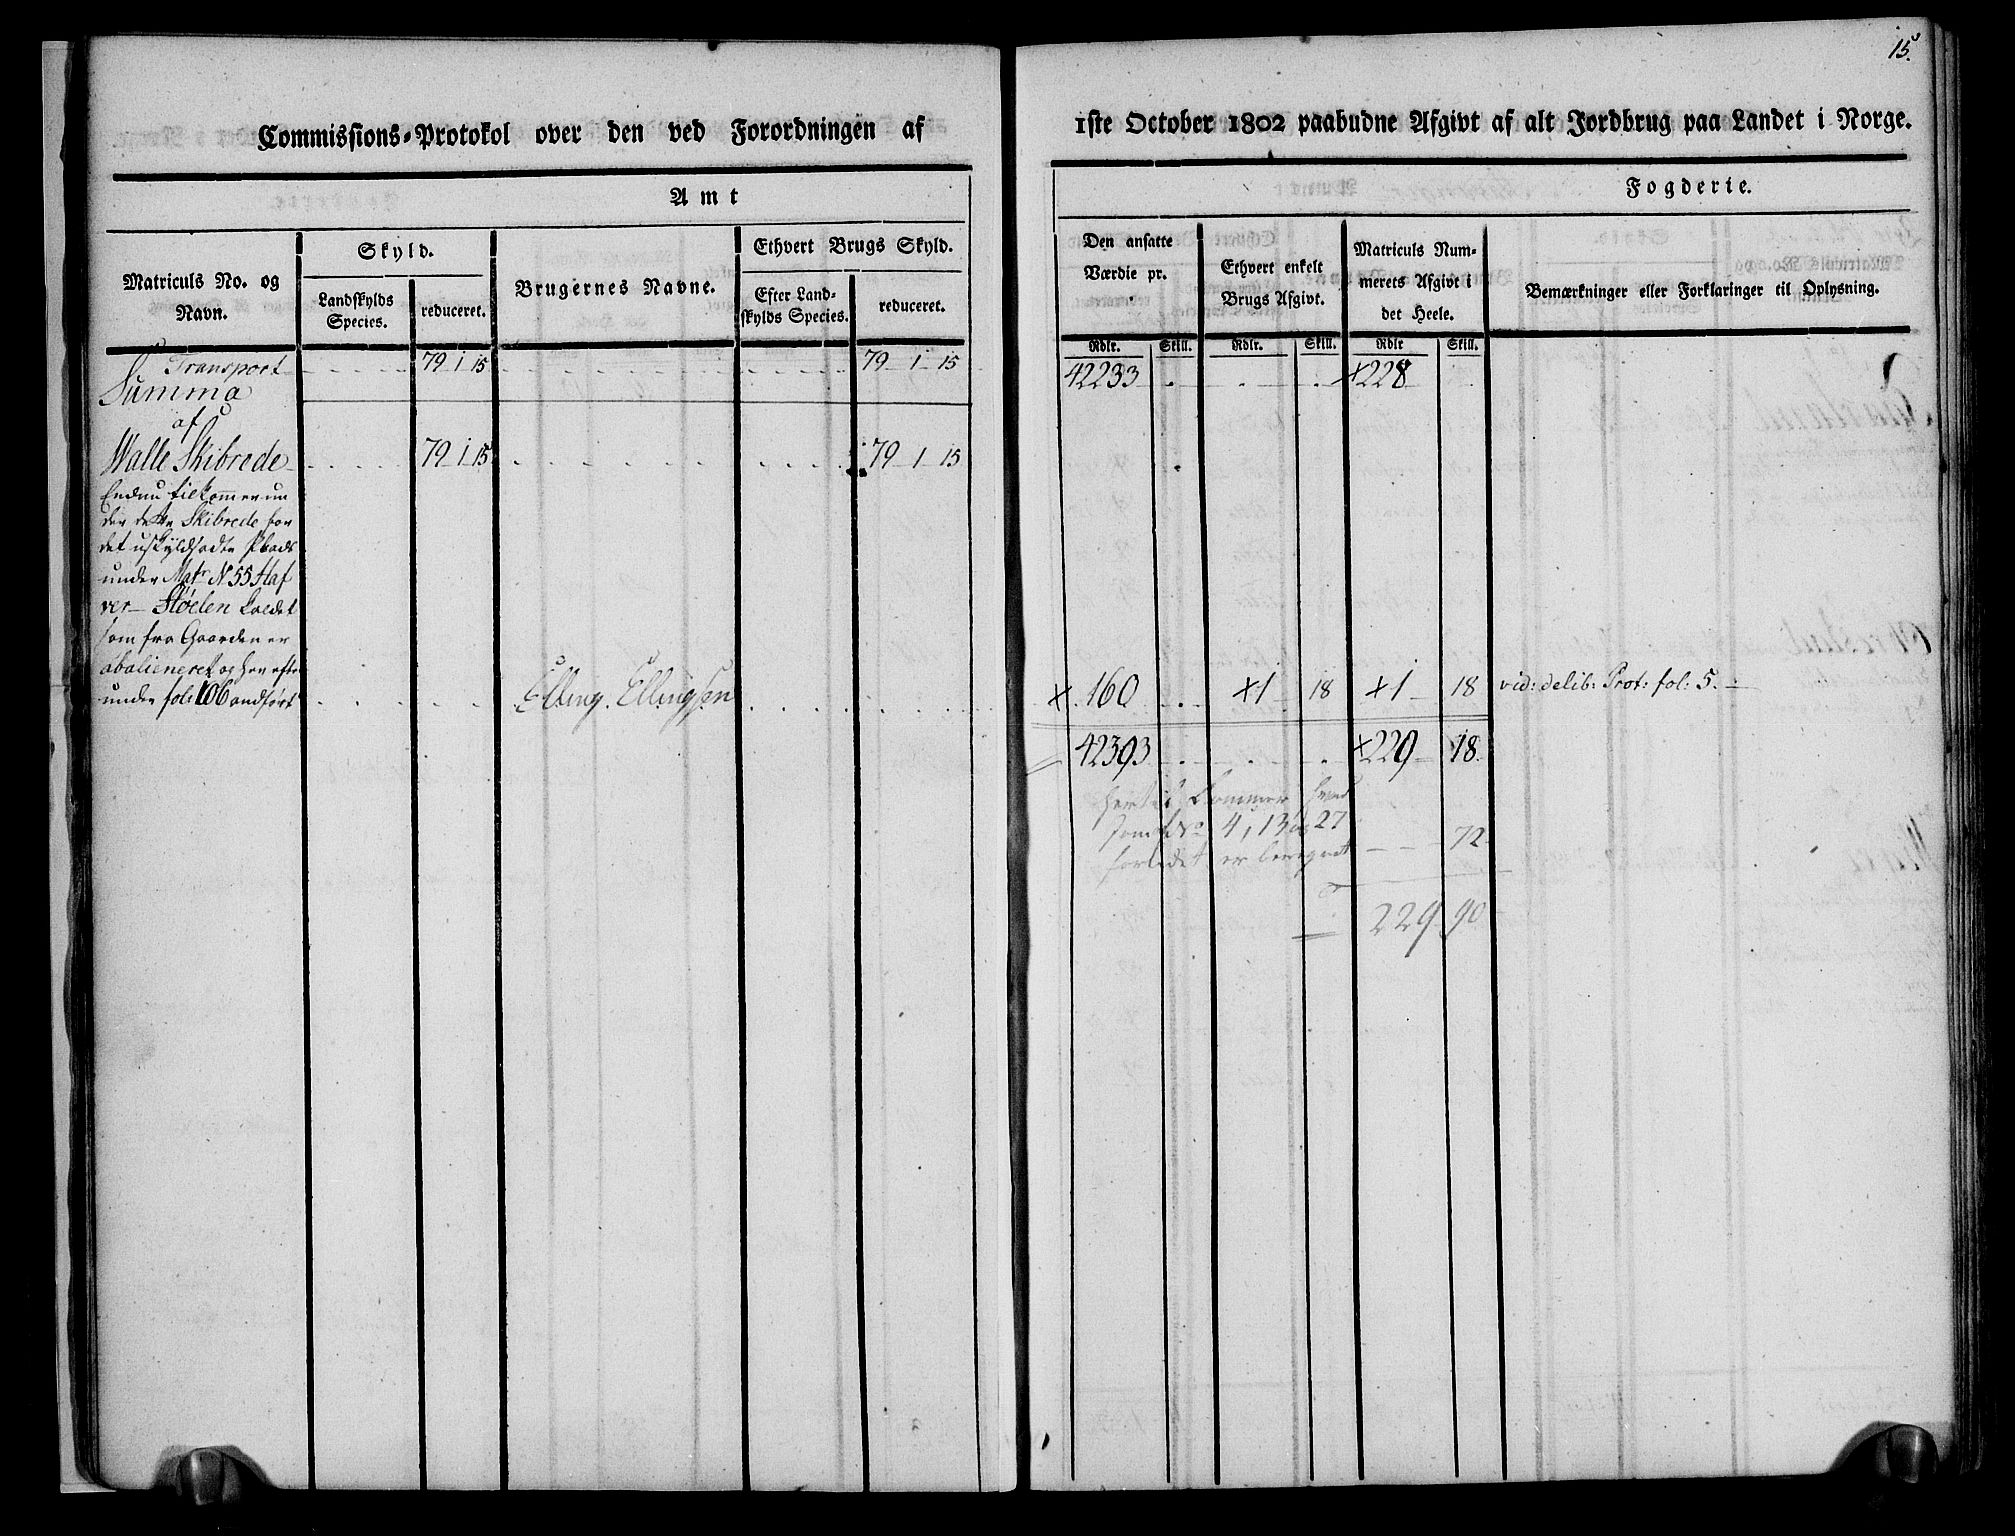 15.
Commissions-Protokol over den ved Forordningen af
1ste October 1802 paabudne Afgivt af alt Jordbrug paa Landet i Norge.
Amt
Fogderie.
Matriculs No. og Navn.
Skyld.
Landskylds Species.
reduceret.
Brugernes Navne.
Ethvert Brugs Skyld.
Efter Landskylds Species.
reduceret.
Den ansatte Værdie pr.
Ethvert enkelt Brugs Afgivt.
Matriculs Nummerets Afgivt i det Heele.
Bemærkninger eller Forklaringer til Oplysning.
Rdlr. Skill. Rdlr. Skill. Rdlr Skill.
Transport 79 1 15 79 1 15 42233 x228
Summa
af
Walle Skibrede 79 1 15 79 1 15
Endnu tilkommer un
der dette Skibrede for
det uskyldsadte Plads
under Matr N 55 Haf
ver Støelen kaldet
som fra Gaarden er
abalieneret og her efter
under fol: 106 andført Elling Ellingsen x 160 x1 18 x1 18 vid: delib: Prot: fol: 5.
42393 x229 18
hertil kommer hvad
som f No 4, 13 og 27
forledet er beregnet 72
229 90